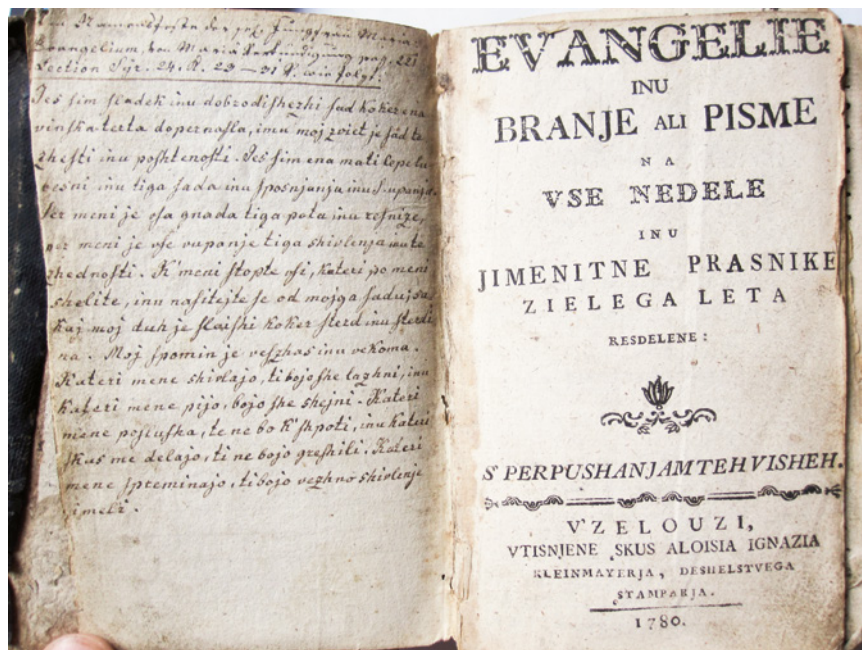 Am Namensfeste der sel. Jungfrau Maria
Evangelium, von Maria Verkündigung pag. 221
Lection Syr. 24. K. 23 — 31 V. wie folgt:
Jes ſim ſladek inu dobrodiſhezhi ſad koker ena
vinſka terta dopernaſla, inu moj zviet je ſàd te
zheſti inu poſhtenoſti. Jes ſim ena mati lepe lu-
besni inu tiga ſada inu ſposnjanja inu S. vupanja.
Per meni je vſa gnada tiga pota inu reſnize,
per meni je vſe vupanje tiga shivlenja inu te
zhednoſti. K'meni ſtopte vſi, kateri po meni
shelite, inu naſitejte ſe od mojga ſadu; sa-
kaj moj duh je ſlaiſhi koker ſterd inu ſterdi-
na. Moj ſpomin je veſzhas inu vekoma.
Kateri mene shivlajo, ti bojo ſhe lazhni, inu
kateri mene pijo, bojo ſhe shejni. Kateri
mene poſluſha, te ne bo k'ſhpoti, inu kateri
ſkus me delajo, ti ne bojo greſhili. Kateri
mene ſpreminajo, ti bojo vezhno shivlenje
imeli.
EVANGELIE
INU
BRANJE ALI PISME
NA
VSE NEDELE
INU
JIMENITNE PRASNIKE
ZIELEGA LETA
RESDELENE:
S' PERPUSHANJAM TEH VISHEH.
V'ZELOUZI,
VTISNJENE SKUS ALOISIA IGNAZIA
KLEINMAYERJA, DESHELSTVEGA
STAMPARJA.
1780.